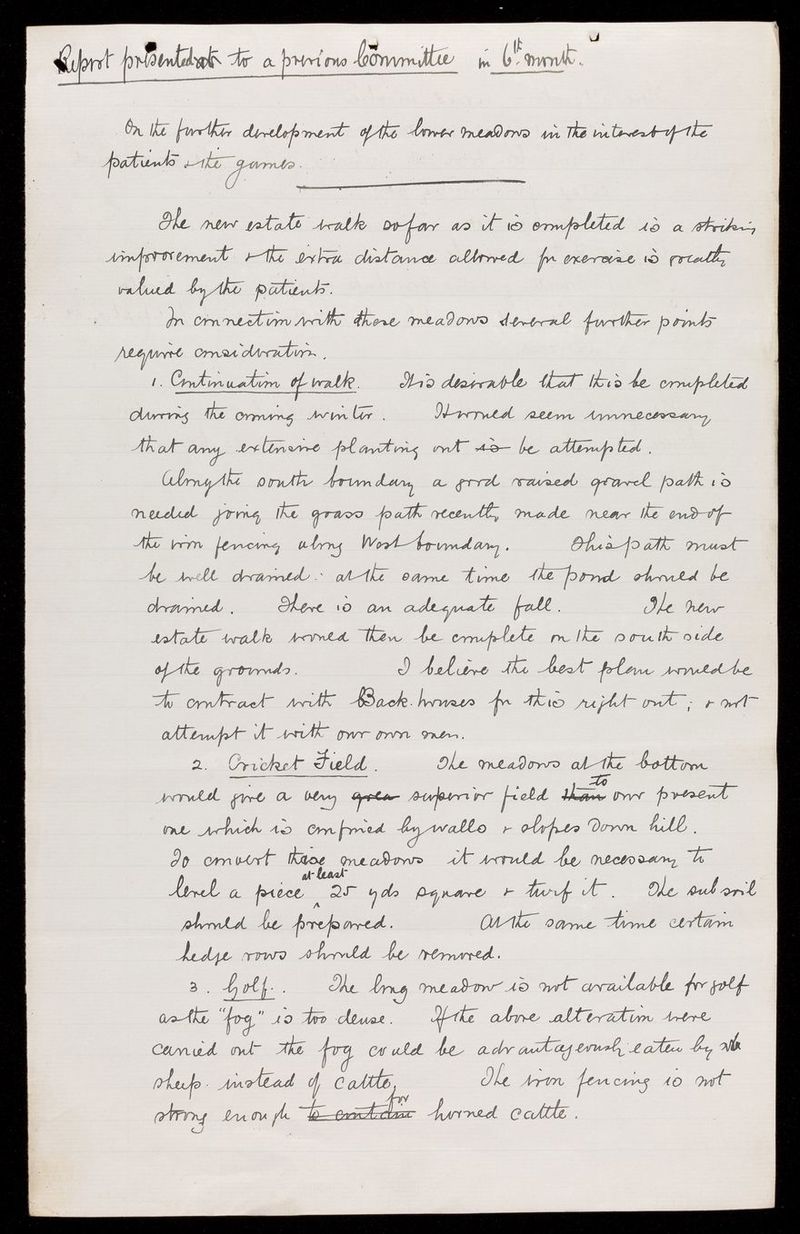 Report presented to a previous Committee in 6th month.
On the further development of the lower meadows in the interest of the
patients & the games.
The new estate walk so far as it is completed is a striking
improvement & the extra distance allowed for exercise is greatly
valued by the patients.
In connection with these meadows several further points
require consideration.
1. Continuation of walk. It is desirable that this be completed
during the coming winter. It would seem unnecessary
that any extensive planting out is be attempted.
Along the south boundary a good raised gravel path is
needed joing the grass path recently made near the end of
the iron fencing along West boundary. This path must
be well drained: at the same time the pond should be
drained. There is an adequate fall. The new
estate walk would then be complete on the south side
of the grounds. I believe the best plan would be
to contract with Backhouses for this right out; & not
attempt it with our own men.
2. Cricket Field. The meadows at the bottom
would give a very grea superior field than to our present
one which is confined by walls & slopes down hill.
To convert these meadows it would be necessary to
level a piece at least 25 yds square & turf it. The subsoil
should be prepared. At the same time certain
hedge rows should be removed.
3. Golf. The long meadow is not available for golf
as the "fog" is too dense. If the above alteration were
carried out the fog could be advantageously eaten by
sheep instead of cattle, The iron fencing is not
strong enough to contain for horned cattle.